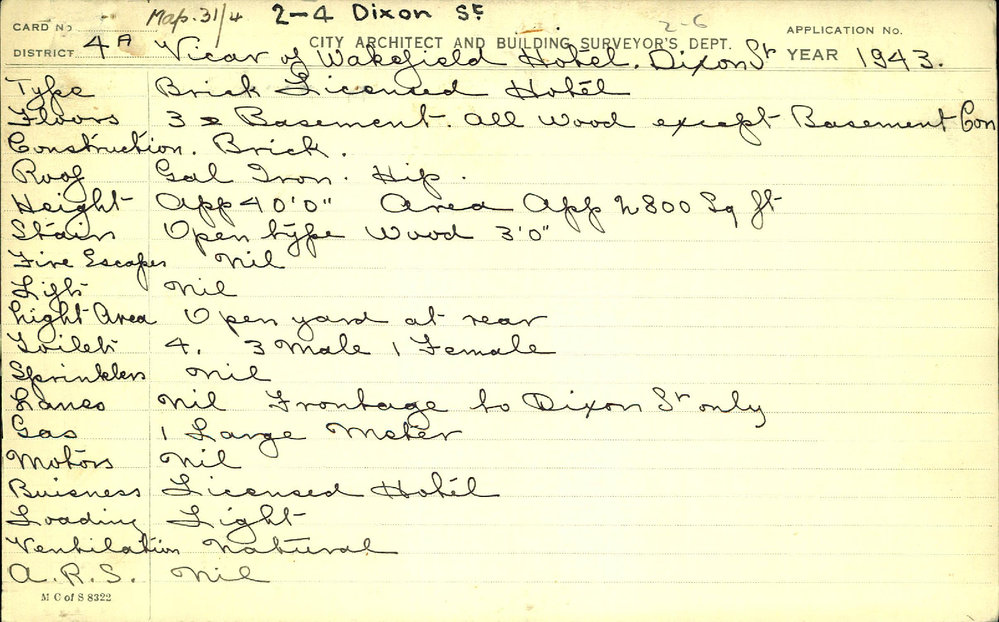 Map. 31/4 2-4 Dixon St 2-6
CARD No APPLICATION No.
CITY ARCHITECT AND BUILDING SURVEYOR'S DEPT.
DISTRICT 4A Vicar of Wakefield Hotel. Dixon St YEAR 1943.
Type Brick Licensed Hotel
Floors 3 & Basement. All Wood except Basement Con
Construction. Brick.
Roof Gal Iron. Hip.
Height App 40'0" Area App 2800 Sq ft
Stairs Open type Wood 3'0"
Fire Escapes Nil
Lifts Nil
Light Area Open yard at rear
Toilets 4. 3 Male 1 Female
Sprinklers Nil
Lanes Nil Frontage to Dixon St only
Gas 1 Large Meter
Motors Nil
Buisness Licensed Hotel
Loading Light
Ventilation Natural
A.R.S. Nil
M C of S 8322